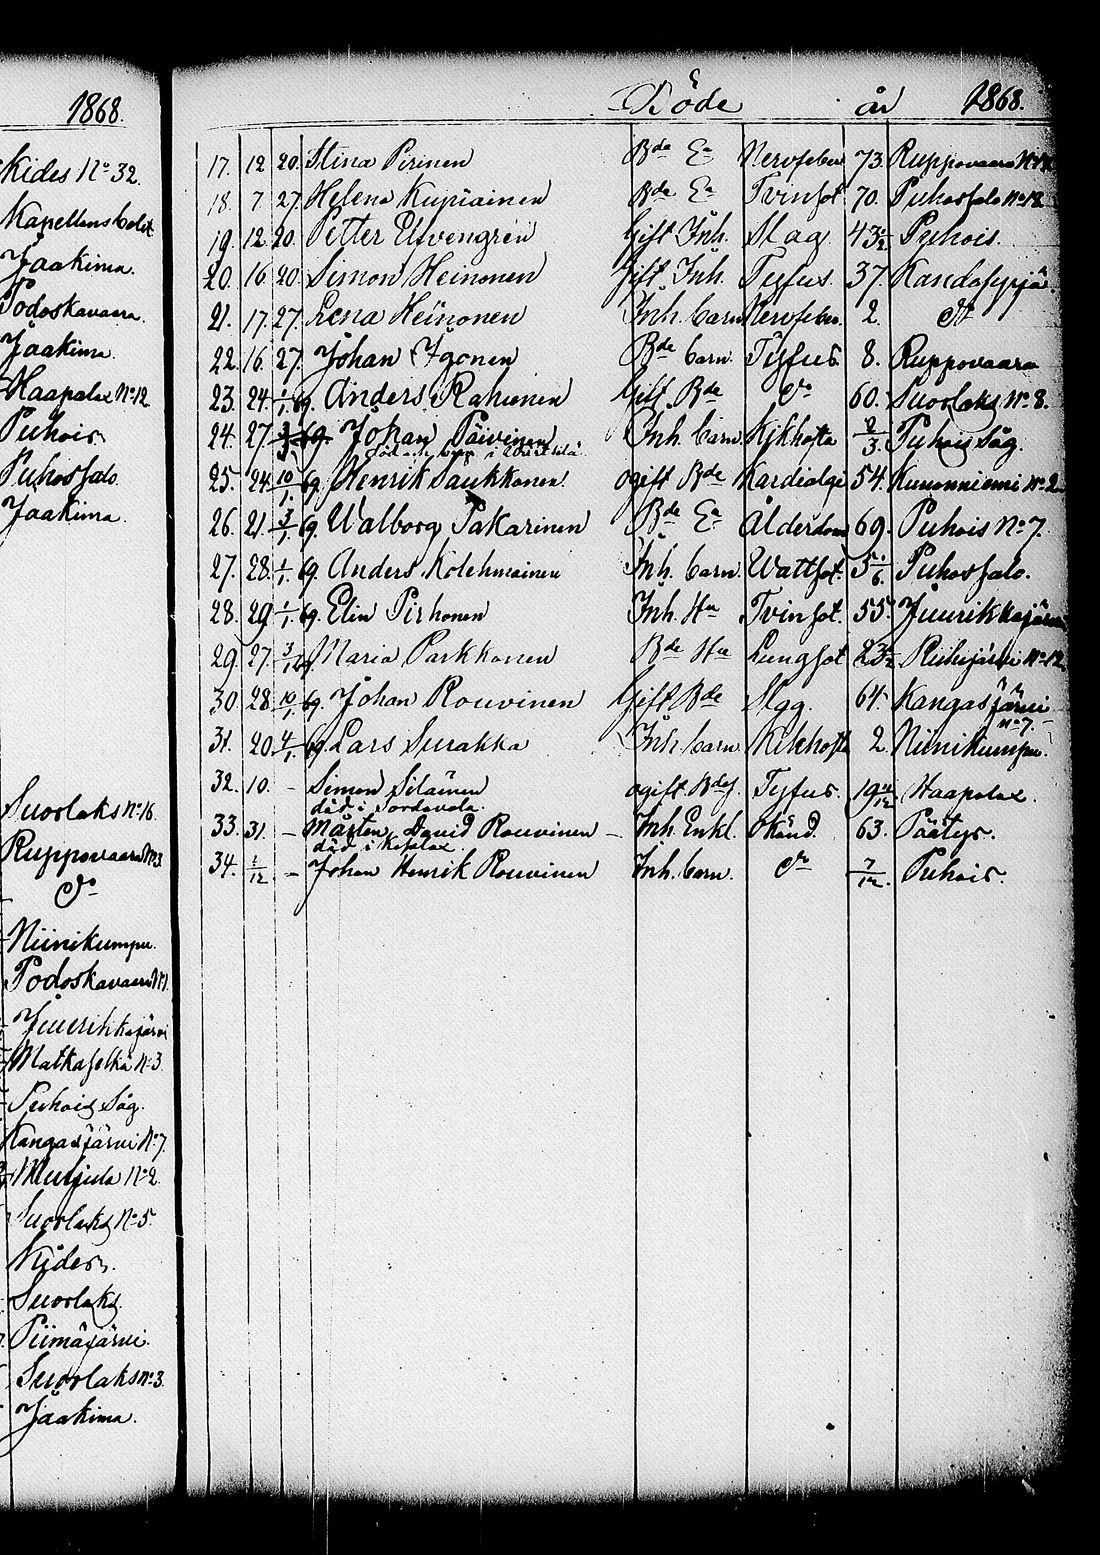 1868.
Kides No 32.
Jaakima.
Podoskavaara.
Jaakima.
Haapalax No 12
Puhois
Puhossalo
Jaakima.
Suorlaks No 16.
Ruppovaara No 3
do
Niinikumpu.
Podoskavaara No 1.
Juurikkajärvi
Matkaselkä No 3.
Puhois Såg.
Kangasjärvi No 7.
Mutjula No 2
Suorlaks No 5.
Kides.
Suorlaks.
Piimäjärvi.
Suorlaks No 3.
Jaakima.
Döde år 1868.
17. 12 20. Stina Pirinen Bde Ea Nervfeber 73. Ruppovaara
18. 7 27. Helena Kupiainen Bde Ea Tvinsot 70. Puhossalo No 12
19. 12. 20. Petter Elfvengren Gift Inh. Slag 43 Puhois.
20. 16. 20. Simon Heinonen Gift Inh. Tyfus. 37.
21. 17. 27. Lena Heinonen Inh. barn Nervfeber. 2. do
22. 16. 27. Johan Igonen Bde barn. Tyfus. 8. Ruppovaara
23. 24. 1/1 69. Anders Rahunen Gift Bde do 60. Suorlaks No 8.
24. 27. 69. Johan Päivinen Inh. barn Kikhosta 2/3. Puhois Såg.
25. 24. 10/1. 69. Henrik Saukkonen. ogift Bde Kardialgi 54. Kunonniemi No 2
26. 21. 3/1. 69. Walborg Pakarinen Bde Ea Ålderdom 69. Puhois No 7.
27. 28. 1/1. 69. Anders Kolehmainen Inh. barn. Wattsot. 5 1/6. Puhossalo.
28. 29 1/1 69. Elin Pirhonen Inh. Hu Tvinsot. 55. Juurikkajärvi
29. 27. 3/12 Maria Parkkonen Bde Hu Lungsot Riihijärvi No 12
30. 28. 10/1. 69. Johan Rouvinen Gift Bde Slag. 64. Kangasjärvi
No 7.
31. 20. 4/1 69. Lars Surakka Inh. barn Kikhosta 2. Niinikumpu.
32. 10. - Simon Silänen ogift Tyfus. 19 11/12 Haapalax.
död i Sordavala.
33. 31. - Mårten David Rouvinen - Inh. Enkl. Okänd. 63. Päätys.
34. 1/12 - Johan Henrik Rouvinen Inh. barn. do 7/12. Puhois.